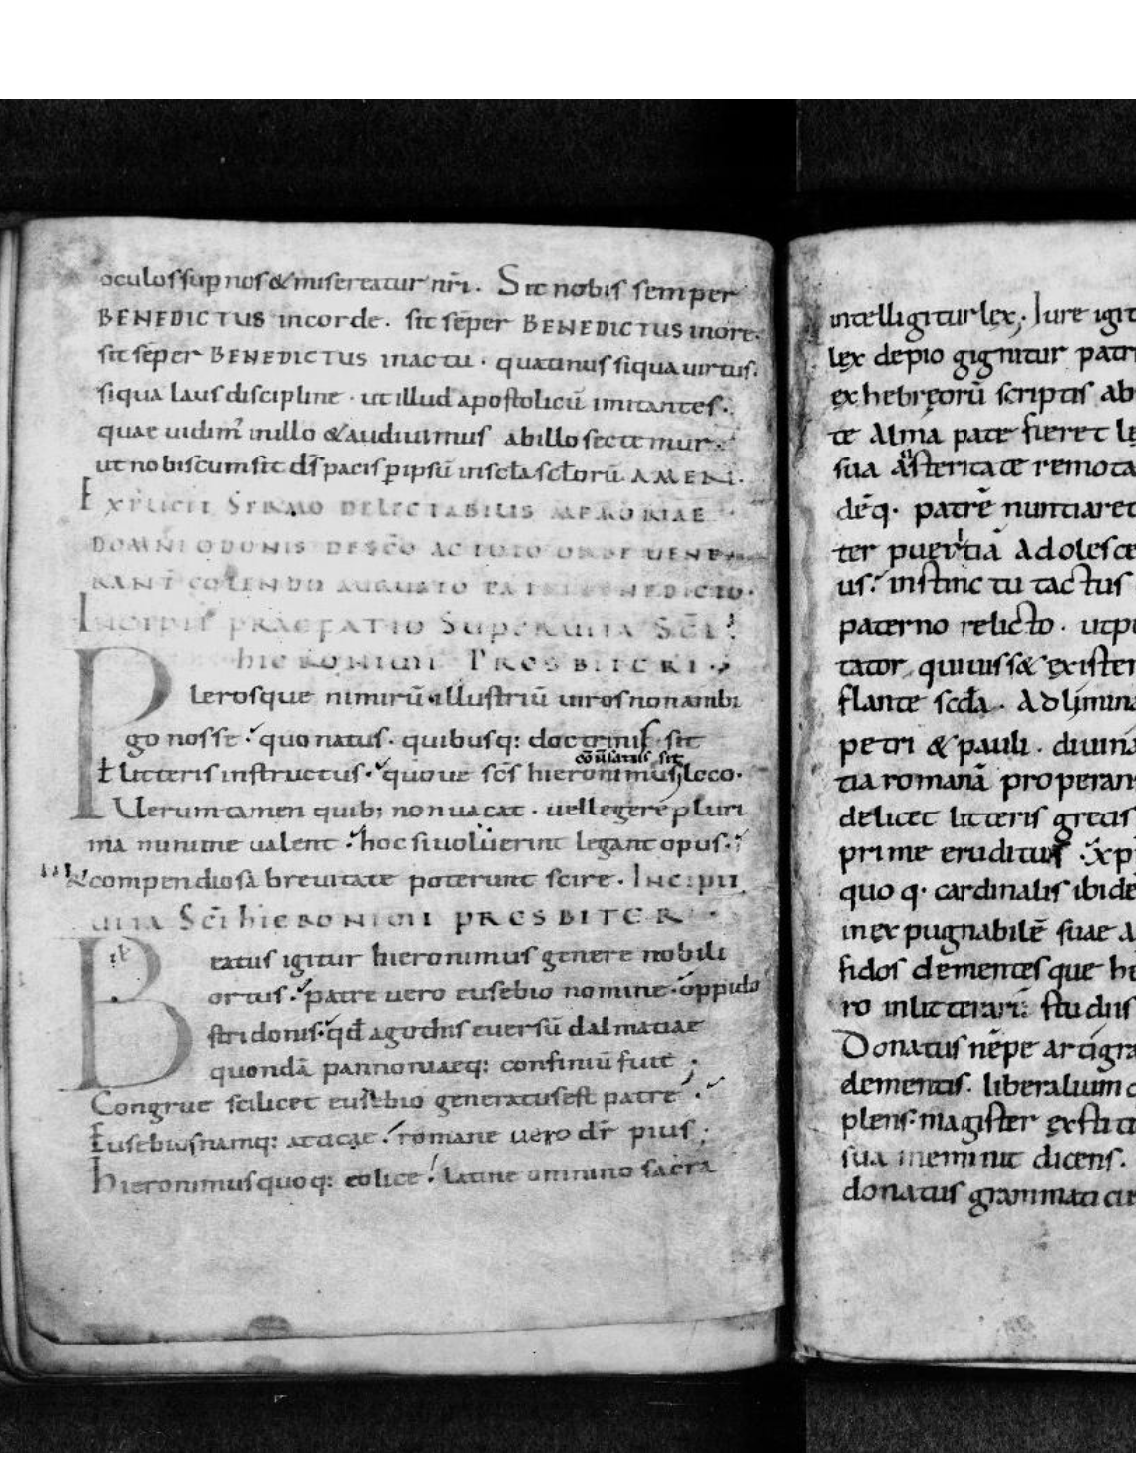 oculos sup nos & misereatur nr̄i. Sit nobis semper
BENEDICTUS incorde. sit sēper BENEDICTUS inore.
sit sēper BENEDICTUS inactu. quatinus siqua uirtus.
siqua laus discipline. ut illud apostolicū imitantes.
quae uidim᷒ inillo & audiuimus abillo sectemur.
ut nobiscum sit ds̄ pacis ꝑ ipsū insc̄la sc̄lorū AMEN.
EXPLICIT SERMO DELECTABILIS MEMORIAE
DOMNI ODONIS DE SC̄O AC TOTO ORBE UENE
RANT COLENDO AUGUSTO PATRE BENEDICTO.
INCIPIT PRAEFATIO SUPER UITA SC̄I
HIERONIMI PRESBITERI.
Plerosque nimirū illustriū uiros non ambi
go nosse. quo natus. quibusq: doctrinis sit
cōuersatus sit
ł litteris instructus. quoue sc̄s hieronimus loco.
Uerumtamen quib; non uacat. uel legere pluri
ma minime ualent. hoc si uoluerint legant opus.
& compendiosa breuitate poterunt scire. INCIPIT
UITA SC̄I HIERONIMI PRESBITER
Beatus igitur hieronimus genere nobili
ortus. patre uero eusebio nomine. oppido
stridonis. qđ agothis euersū dalmatiae
quondā pannoniaeq: confiniū fuit;
Congrue scilicet eusebio generatus est patre.
Eusebius namq: atticae. romane uero dr̄ pius;
hieronimus quoq: eolice! latine omnino sacra
intelligitur lex; Iure igit
lex depio gignitur patr
ex hebręorū scriptis ab
te Alma pate fieret le
sua asteritate remota
dēq. patrē nuntiaret
ter pueritiā Adolesce
us. instinctu tactus
paterno relicto. utpu
tator quiuisset existen
flante sc̄da. Ad limina
petri & pauli. diuina
tia romanā properan
delicet litteris grecis
prime eruditus xp
quo q. cardinalis ibide
inexpugnabilē suae a
fidos dementesque hi
ro inlitterarū studiis
Donatus nēpe artigra
dementis. liberalium d
plens. magister exstit
sua meminit dicens.
donatus grammaticus